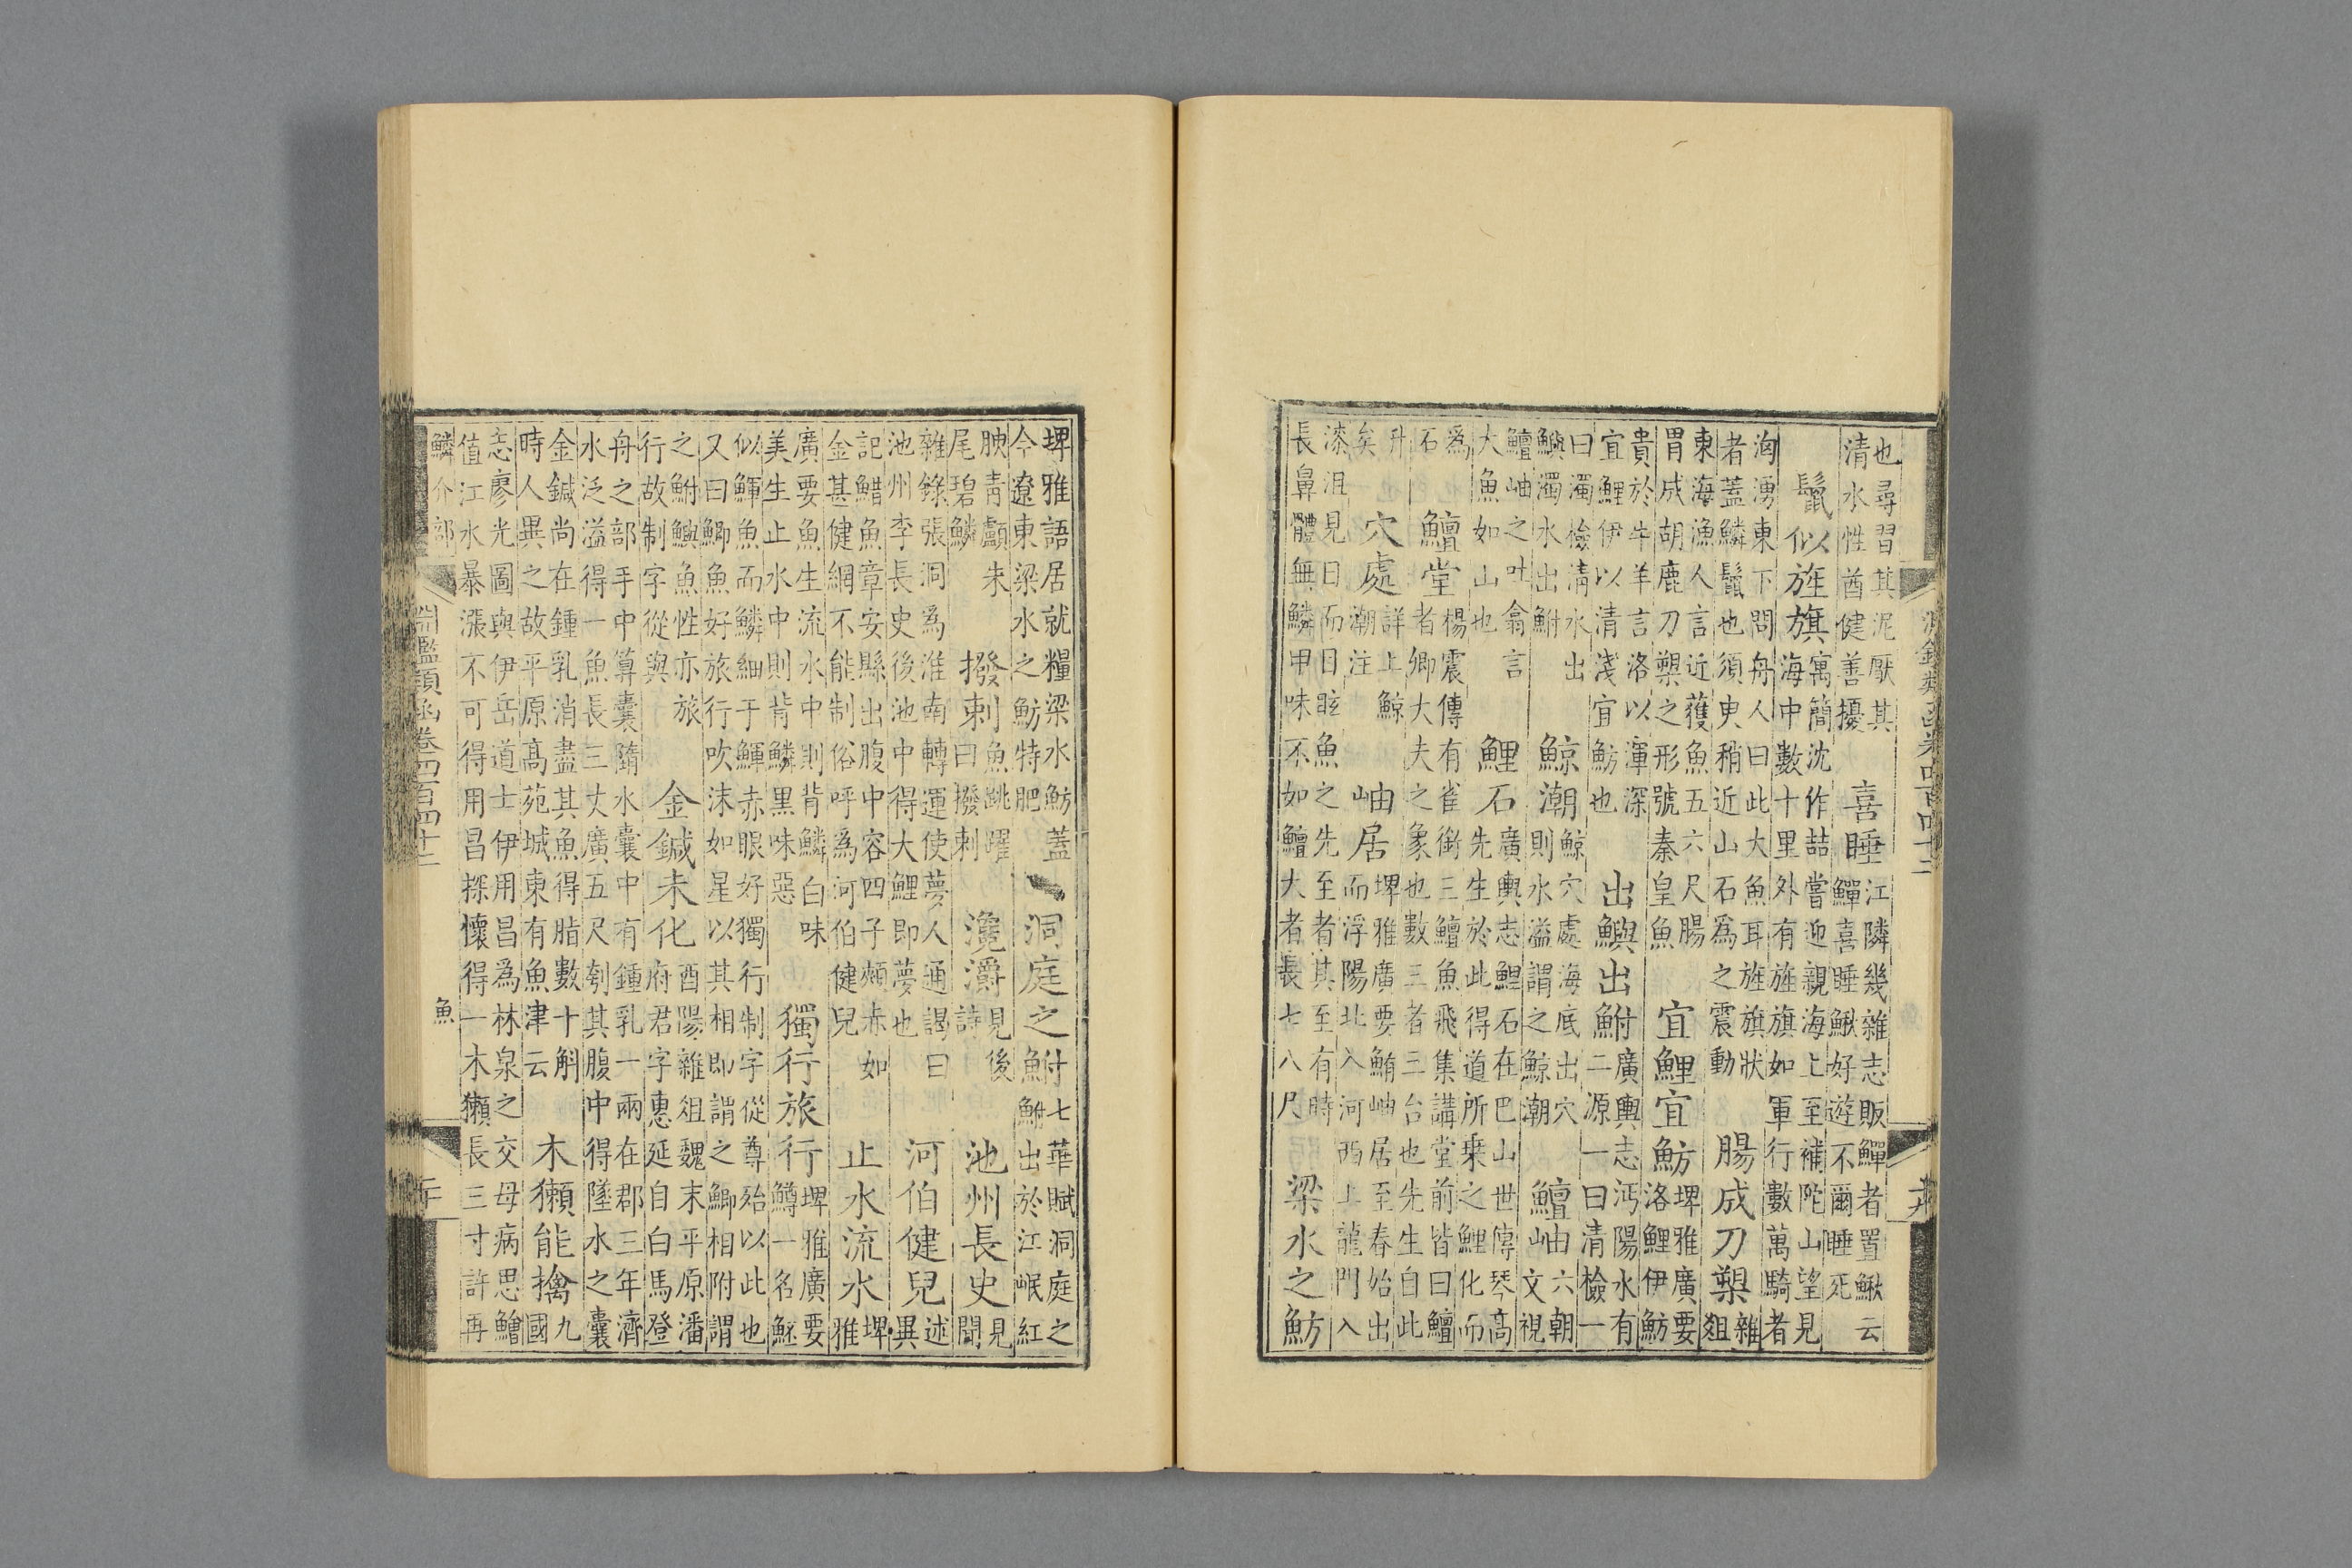 淵鑑類函卷四百四十二
也尋習其泥厭其
清水性酋健善擾
喜睡
江隣幾雜志販鱓者置鰍云
鱓喜睡鰍好遊不爾睡死
鬣似旌旗
寓簡沈作喆嘗迎親海上至補陀山望見
海中數十里外有旌旗如軍行數萬騎者
洶湧東下問舟人曰此大魚耳旌旗狀
者蓋鱗鬣也須臾稍近山石爲之震動
腸成刀槊
雜
俎
東海漁人言近獲魚五六尺腸
胃成胡鹿刀槊之形號秦皇魚
宜鯉宜魴
埤雅廣要
洛鯉伊魴
貴於牛羊言洛以渾深
宜鯉伊以清淺宜魴也
出鱮出鮒
廣輿志沔陽水有
二源一曰清檢一
曰濁檢淸水出
鱮濁水出鮒
鯨潮
鯨穴處海底出穴
則水溢謂之鯨潮
鱣岫
六朝
文視
鱣岫之吐翕言
大魚如山也
鯉石
廣輿志鯉石在巴山世傳琴髙
先生於此得道所乗之鯉化而
爲
石
鱣堂
楊震傳有雀銜三鱣魚飛集講堂前皆曰鱣
者卿大夫之象也數三者三台也先生自此
升
矣
穴處
詳上鯨
潮注
岫居
埤雅廣要鮪岫居至春始出
而浮陽北入河西上龍門入
漆沮見日而目眩魚之先至者其至有時
長鼻體無鱗甲味不如鱣大者長七八尺
梁水之魴
埤雅語居就糧梁水魴蓋
今遼東梁水之魴特肥
洞庭之鮒
七華賦洞庭之
鮒出於江岷紅
腴靑顱朱
尾碧鱗
撥剌
魚跳躍
曰撥剌
瀺灂
見後
詩
池州長史
見
聞
雜錄張洞爲淮南轉運使夢人通謁曰
池州李長史後池中得大鯉即夢也
河伯健兒
述
異
記鯌魚章安縣出腹中容四子頰赤如
金甚健網不能制俗呼爲河伯健兒
止水流水
埤
雅
廣要魚生流水中則背鱗白味
美生止水中則背鱗黑味惡
獨行旅行
埤雅廣要
鱒一名鮅
似鯶魚而鱗細于鯶赤眼好獨行制字從尊殆以此也
又曰鯽魚好旅行吹沫如星以其相即謂之鯽相附謂
之鮒鱮魚性亦旅
行故制字從與
金鍼未化
酉陽雜俎魏末平原潘
府君字惠延自白馬登
舟之部手中算囊隨水囊中有鍾乳一兩在郡三年濟
水泛溢得一魚長三丈廣五尺刳其腹中得墜水之囊
金鍼尚在鍾乳消盡其魚得脂數十斛
時人異之故平原髙苑城東有魚津云
木獺能擒
九
國
志廖光圖與伊岳道士伊用昌爲林泉之交母病思鱠
值江水暴漲不可得用昌探懷得一木獺長三寸許再
鱗介部
淵鑑類函卷四百四十二
魚